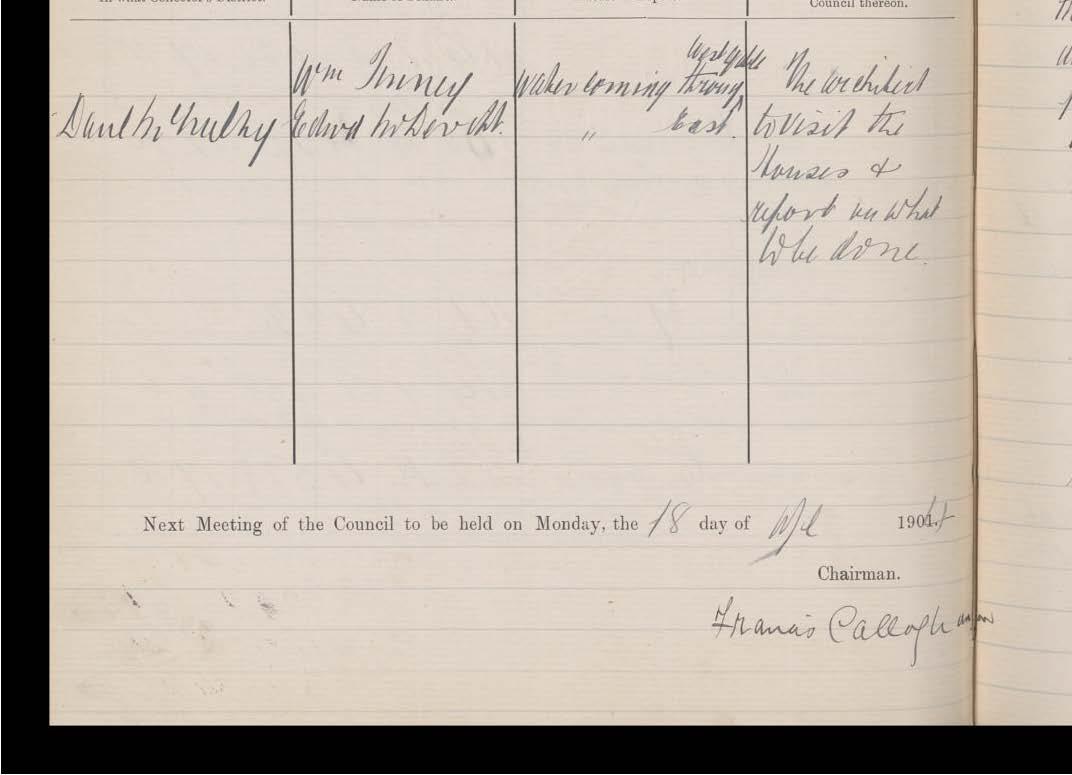 In what Collector's District.
Council thereon.
west gable
Wm Tinney Water coming through The architect
Danl McNulty Edwd McDevitt. " East. to visit the
Houses &
report on what
to be done.
Next Meeting of the Council to be held on Monday, the 18 day of Apl 1904
Chairman.
Francis Callaghan